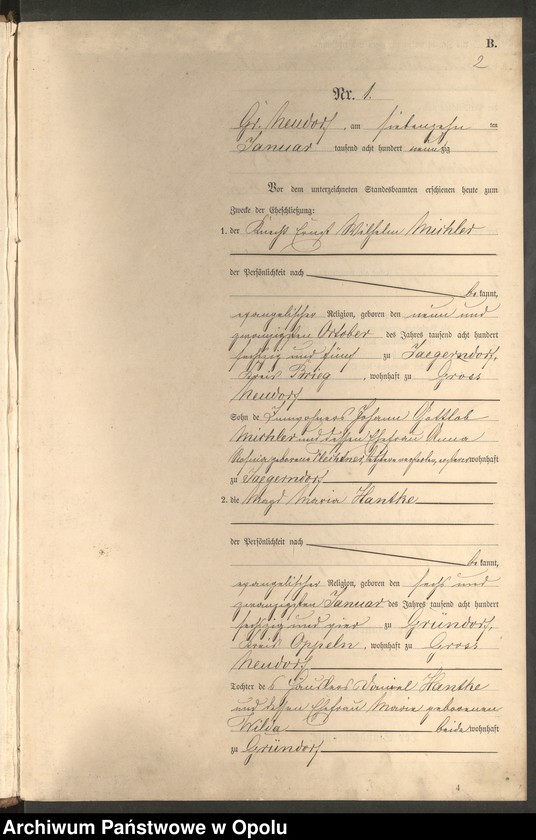 B.
2
Nr. 1.
Gr. Neudorf, am siebenzehn ten
Januar tausend acht hundert neunzig
Vor dem unterzeichneten Standesbeamten erschienen heute zum
Zwecke der Eheschließung:
1. der Knecht Ernst Wilhelm Mischler
der Persönlichkeit nach
be kannt,
evangelischer Religion, geboren den neun und
zwanzigsten October des Jahres tausend acht hundert
sechzig und fünf zu Jaegerndorf,
Kreis Brieg, wohnhaft zu Gross
Neudorf
Sohn des Inwohners Johann Gottlob
Mischler und dessen Ehefrau Anna
Rosina geborene letztere verstorben, ersterer wohnhaft
zu Jaegerndorf
2. die Magd Maria Hantke
der Persönlichkeit nach
be kannt,
evangelischer Religion, geboren den sechs und
zwanzigsten Januar des Jahres tausend acht hundert
sechzig und vier zu Gründorf,
Kreis Oppeln, wohnhaft zu Gross
Neudorf
Tochter des Häuslers Daniel Hantke
und dessen Ehefrau Marie geborenen
Wilda beide wohnhaft
zu Gründorf
4
Archiwum Państwowe w Opolu